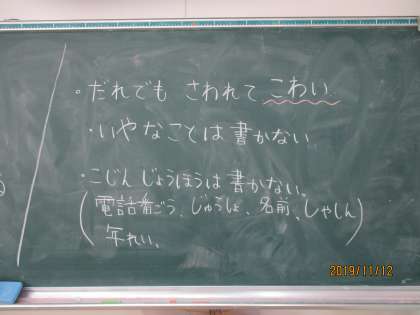 。だれでも さわれて こわい
・いやなことは書かない
・こじんじょうほうは書かない。
(電話番ごう、じゅうしょ、名前、しゃしん
年れい。)
2019/11/12